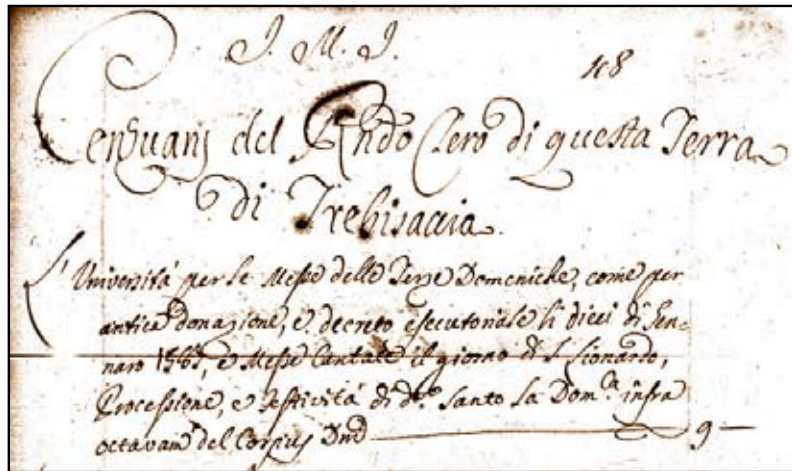 J. M. J.
48
Censuarj del Rndo Clero di questa Terra
di Trebisaccia
L'Università per le Messe delle Terze Domeniche, come per
antica donazione, e decreto esecutoriale li dieci di Gen=
naro e Messe Cantate il giorno di S. Lionardo,
Processione, e Festività di do. Santo la Domca infra
octavam del Corpus Dni 9